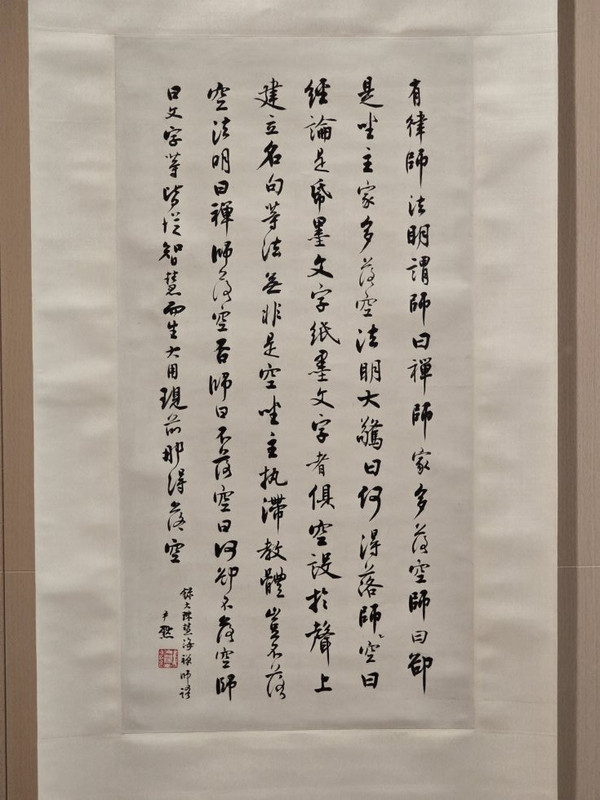 有律師法明謂師曰禪師家多落空師曰卻
是坐主家多落空法明大驚曰何得落師空曰
經論是帋墨文字紙墨文字者俱空設於聲上
建立名句等法無非是空坐主執滯教體豈不落
空法明曰禪師落空否師曰不落空曰何卻不落空師
曰文字等皆從智慧而生大用現前那得落空
錄大珠慧海禪師
尹默